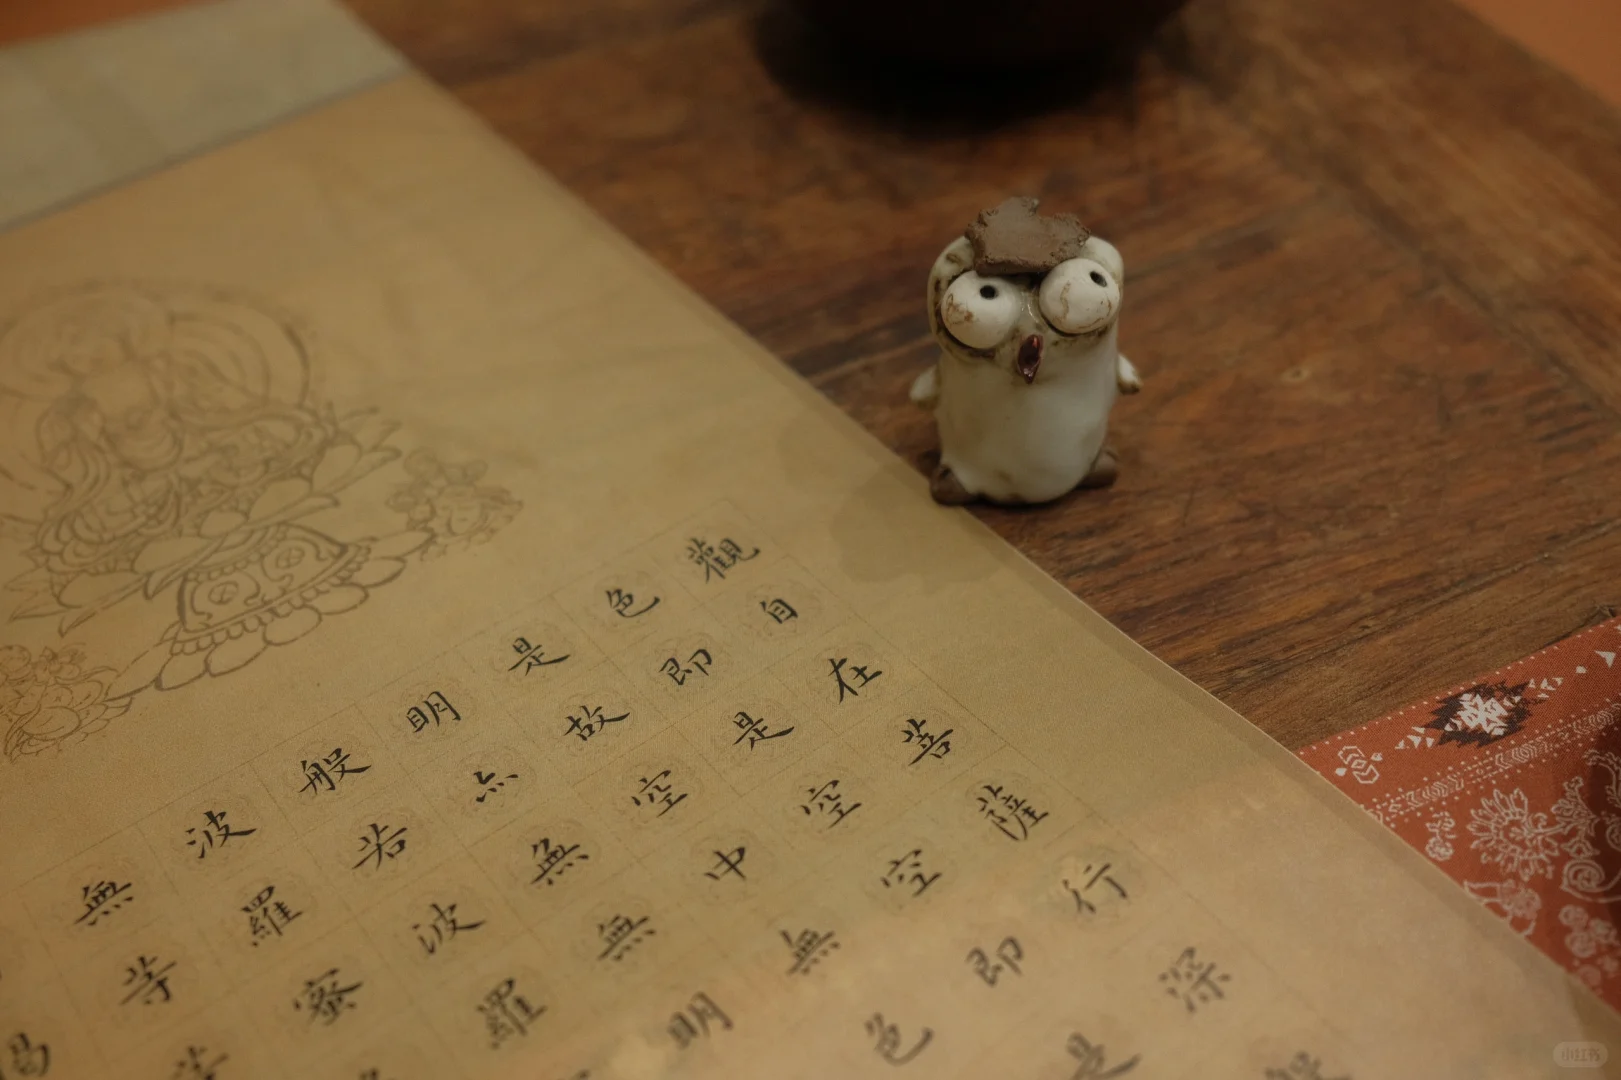 觀自在菩薩行深般
色即是空空即是
是故空中無色
明亦無無明
般若波羅
波羅蜜
無等等
小红书